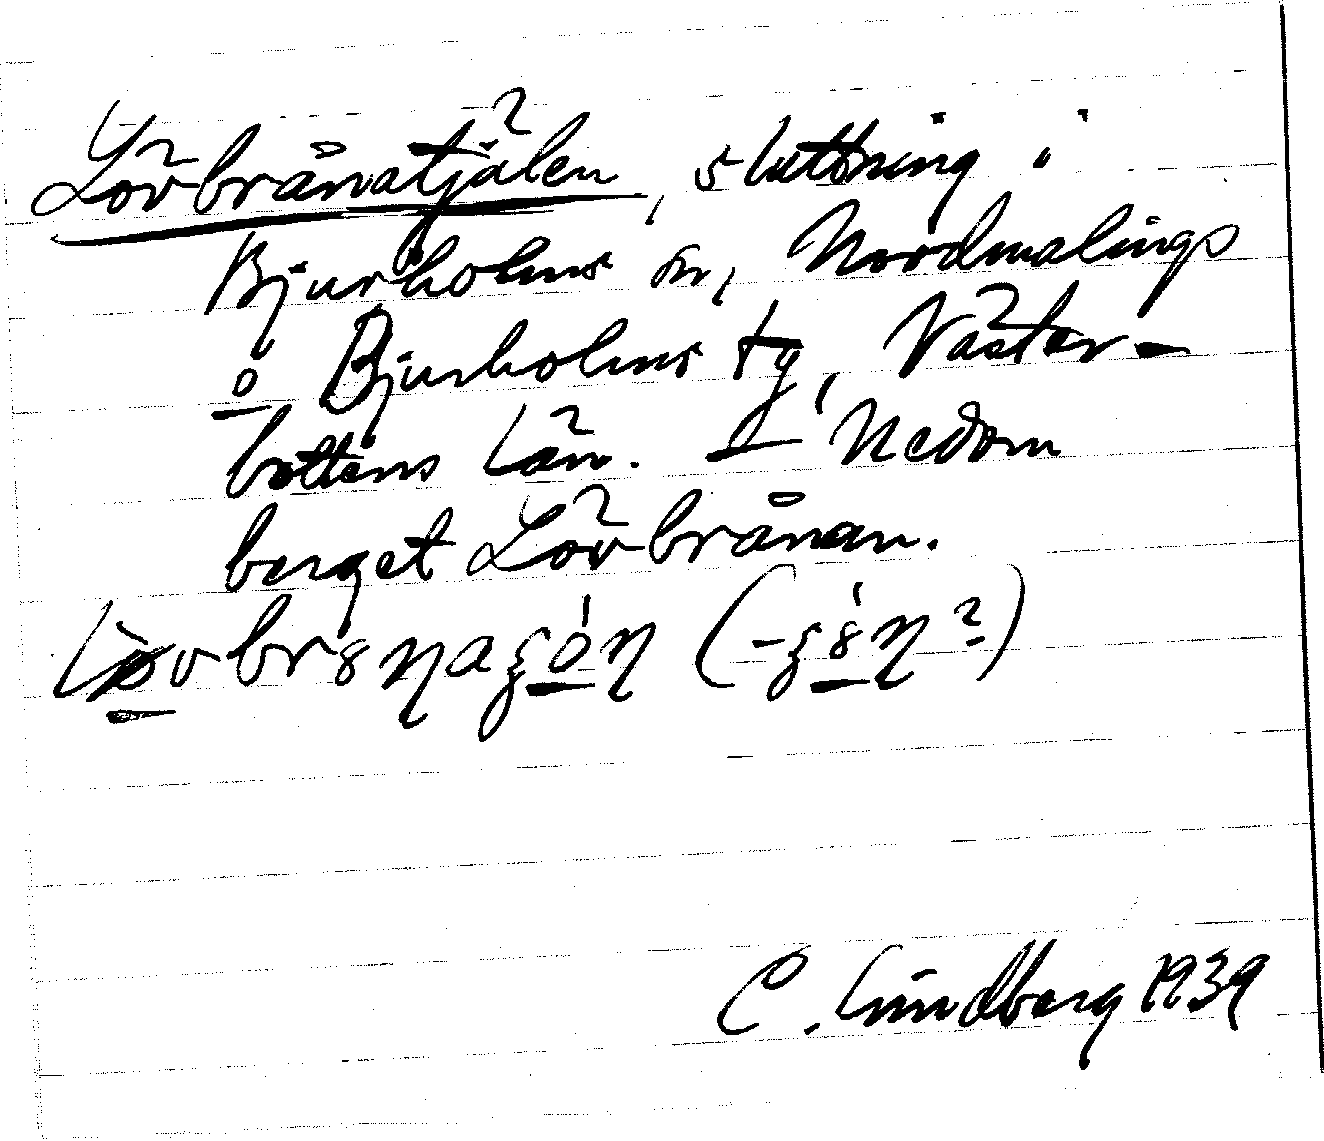 Lövbrånatjälen, sluttning i
Bjurholms sn, Nordmalings
o Bjurholms tg, Väster-
bottens län. — Nedom
berget Lövbrånan.
C. Lindberg 1939